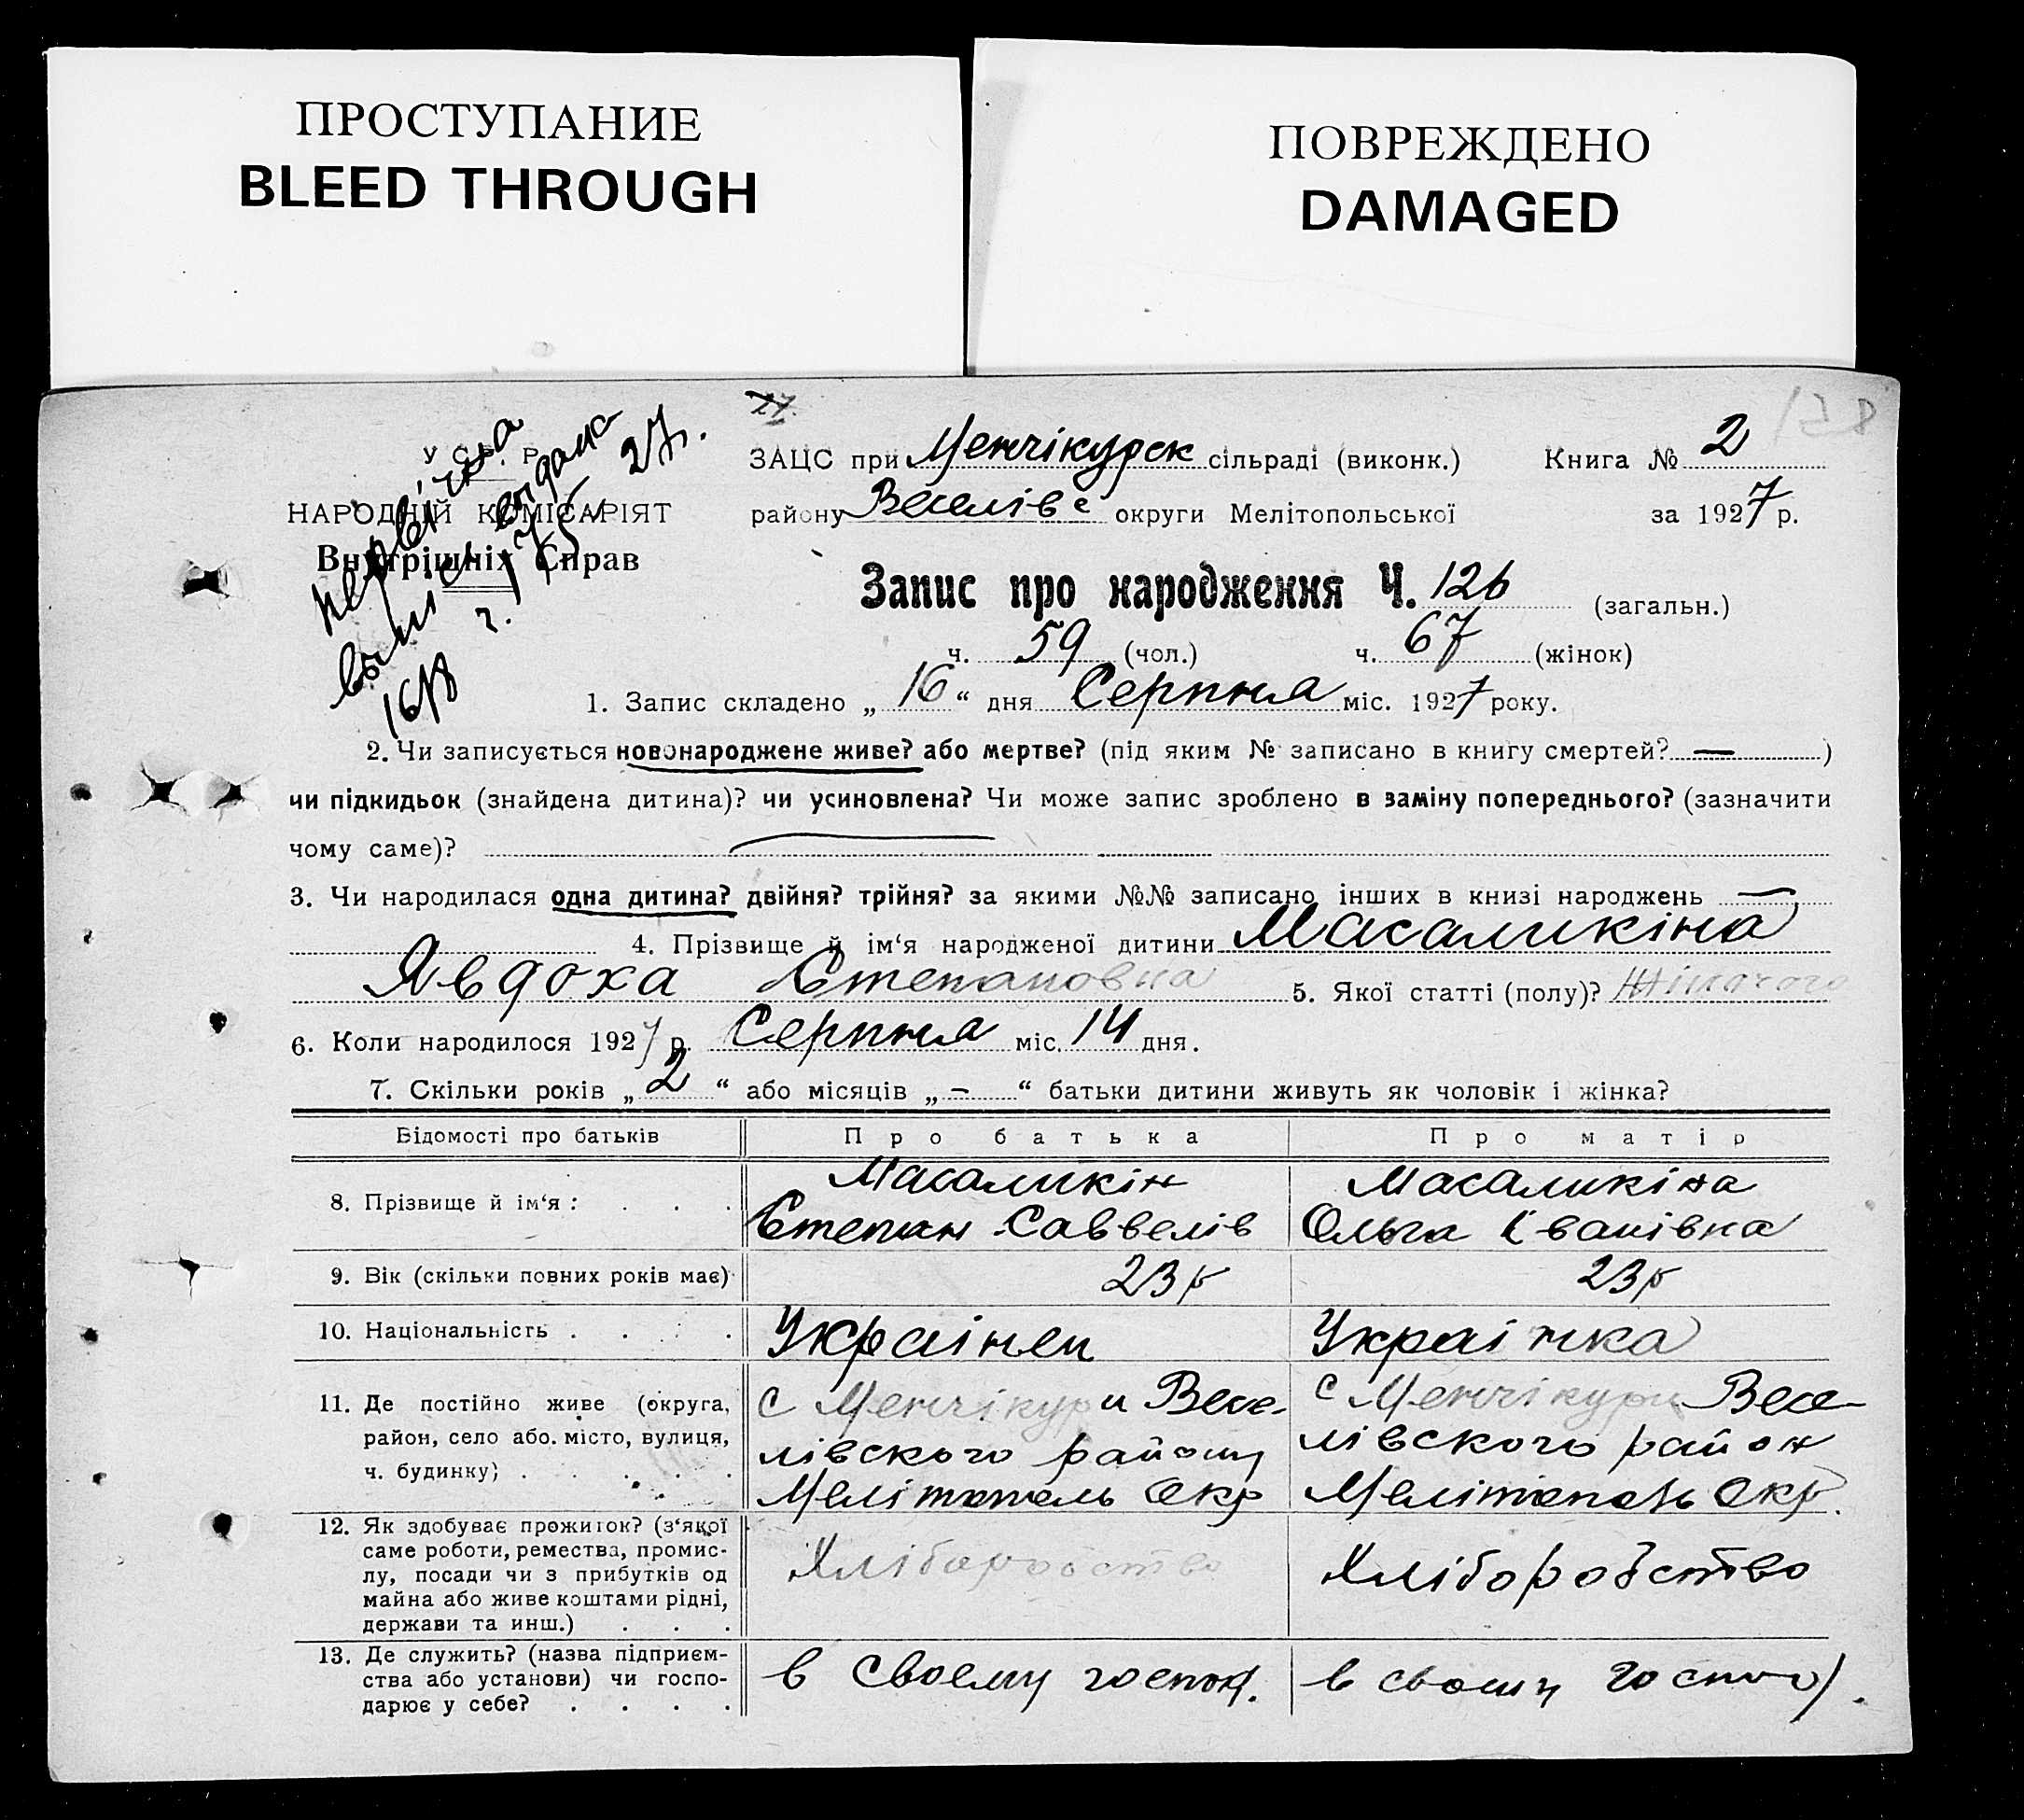 ПРОСТУПАНИЕ
BLEED THROUGH
ПОВРЕЖДЕНО
DAMAGED
27.
У С Р Р
НАРОДНІЙ КОМІСАРІЯТ
Внутрішніх Справ
первічна
выпис выдана
ч. 175
16/8 27г.
ЗАЦС при Менчікурск сільраді (виконк.) Книга № 2
району Веселівс округи Мелітопольської за 1927 р.
Запис про народження Ч. 126 (загальн.)
ч. 59 (чол.) ч. 67 (жінок)
1. Запис складено „ 16 “ дня Серпня міс. 1927 року.
2. Чи записується новонароджене живе? або мертве? (під яким № записано в книгу смертей? — )
чи підкидьок (знайдена дитина)? чи усиновлена? Чи може запис зроблено в заміну попереднього? (зазначити
чому саме)?
3. Чи народилася одна дитина? двійня? трійня? за якими №№ записано інших в книзі народжень —
4. Прізвище й ім‘я народженої дитини Масаликіна
Явдоха Степановна 5. Якої статті (полу)? Жіночого
6. Коли народилося 1927 р. Серпня міс. 14 дня.
7. Скільки років „ 2 “ або місяців „ – “ батьки дитини живуть як чоловік і жінка?
Відомості про батьків Про батька Про матір
8. Прізвище й ім‘я : Масаликін Степан Саввелів Масаликіна Ольга Іванівна
9. Вік (скільки повних років має) 23 р 23 р
10. Національність Українец Українка
11. Де постійно живе (округа,
район, село або місто, вулиця,
ч. будинку)
с Менчікури Весе-
лівского району
Мелітополь Окр
с Менчікури Весе-
лівского район
Мелітополь Окр.
12. Як здобуває прожиток? (з‘якої
саме роботи, ремества, промис-
лу, посади чи з прибутків од
майна або живе коштами рідні,
держави та инш.)
Хліборобство
Хліборобство
13. Де служить? (назва підприєм-
ства або установи) чи госпо-
дарює у себе?
в своему господ.
в своему господ.